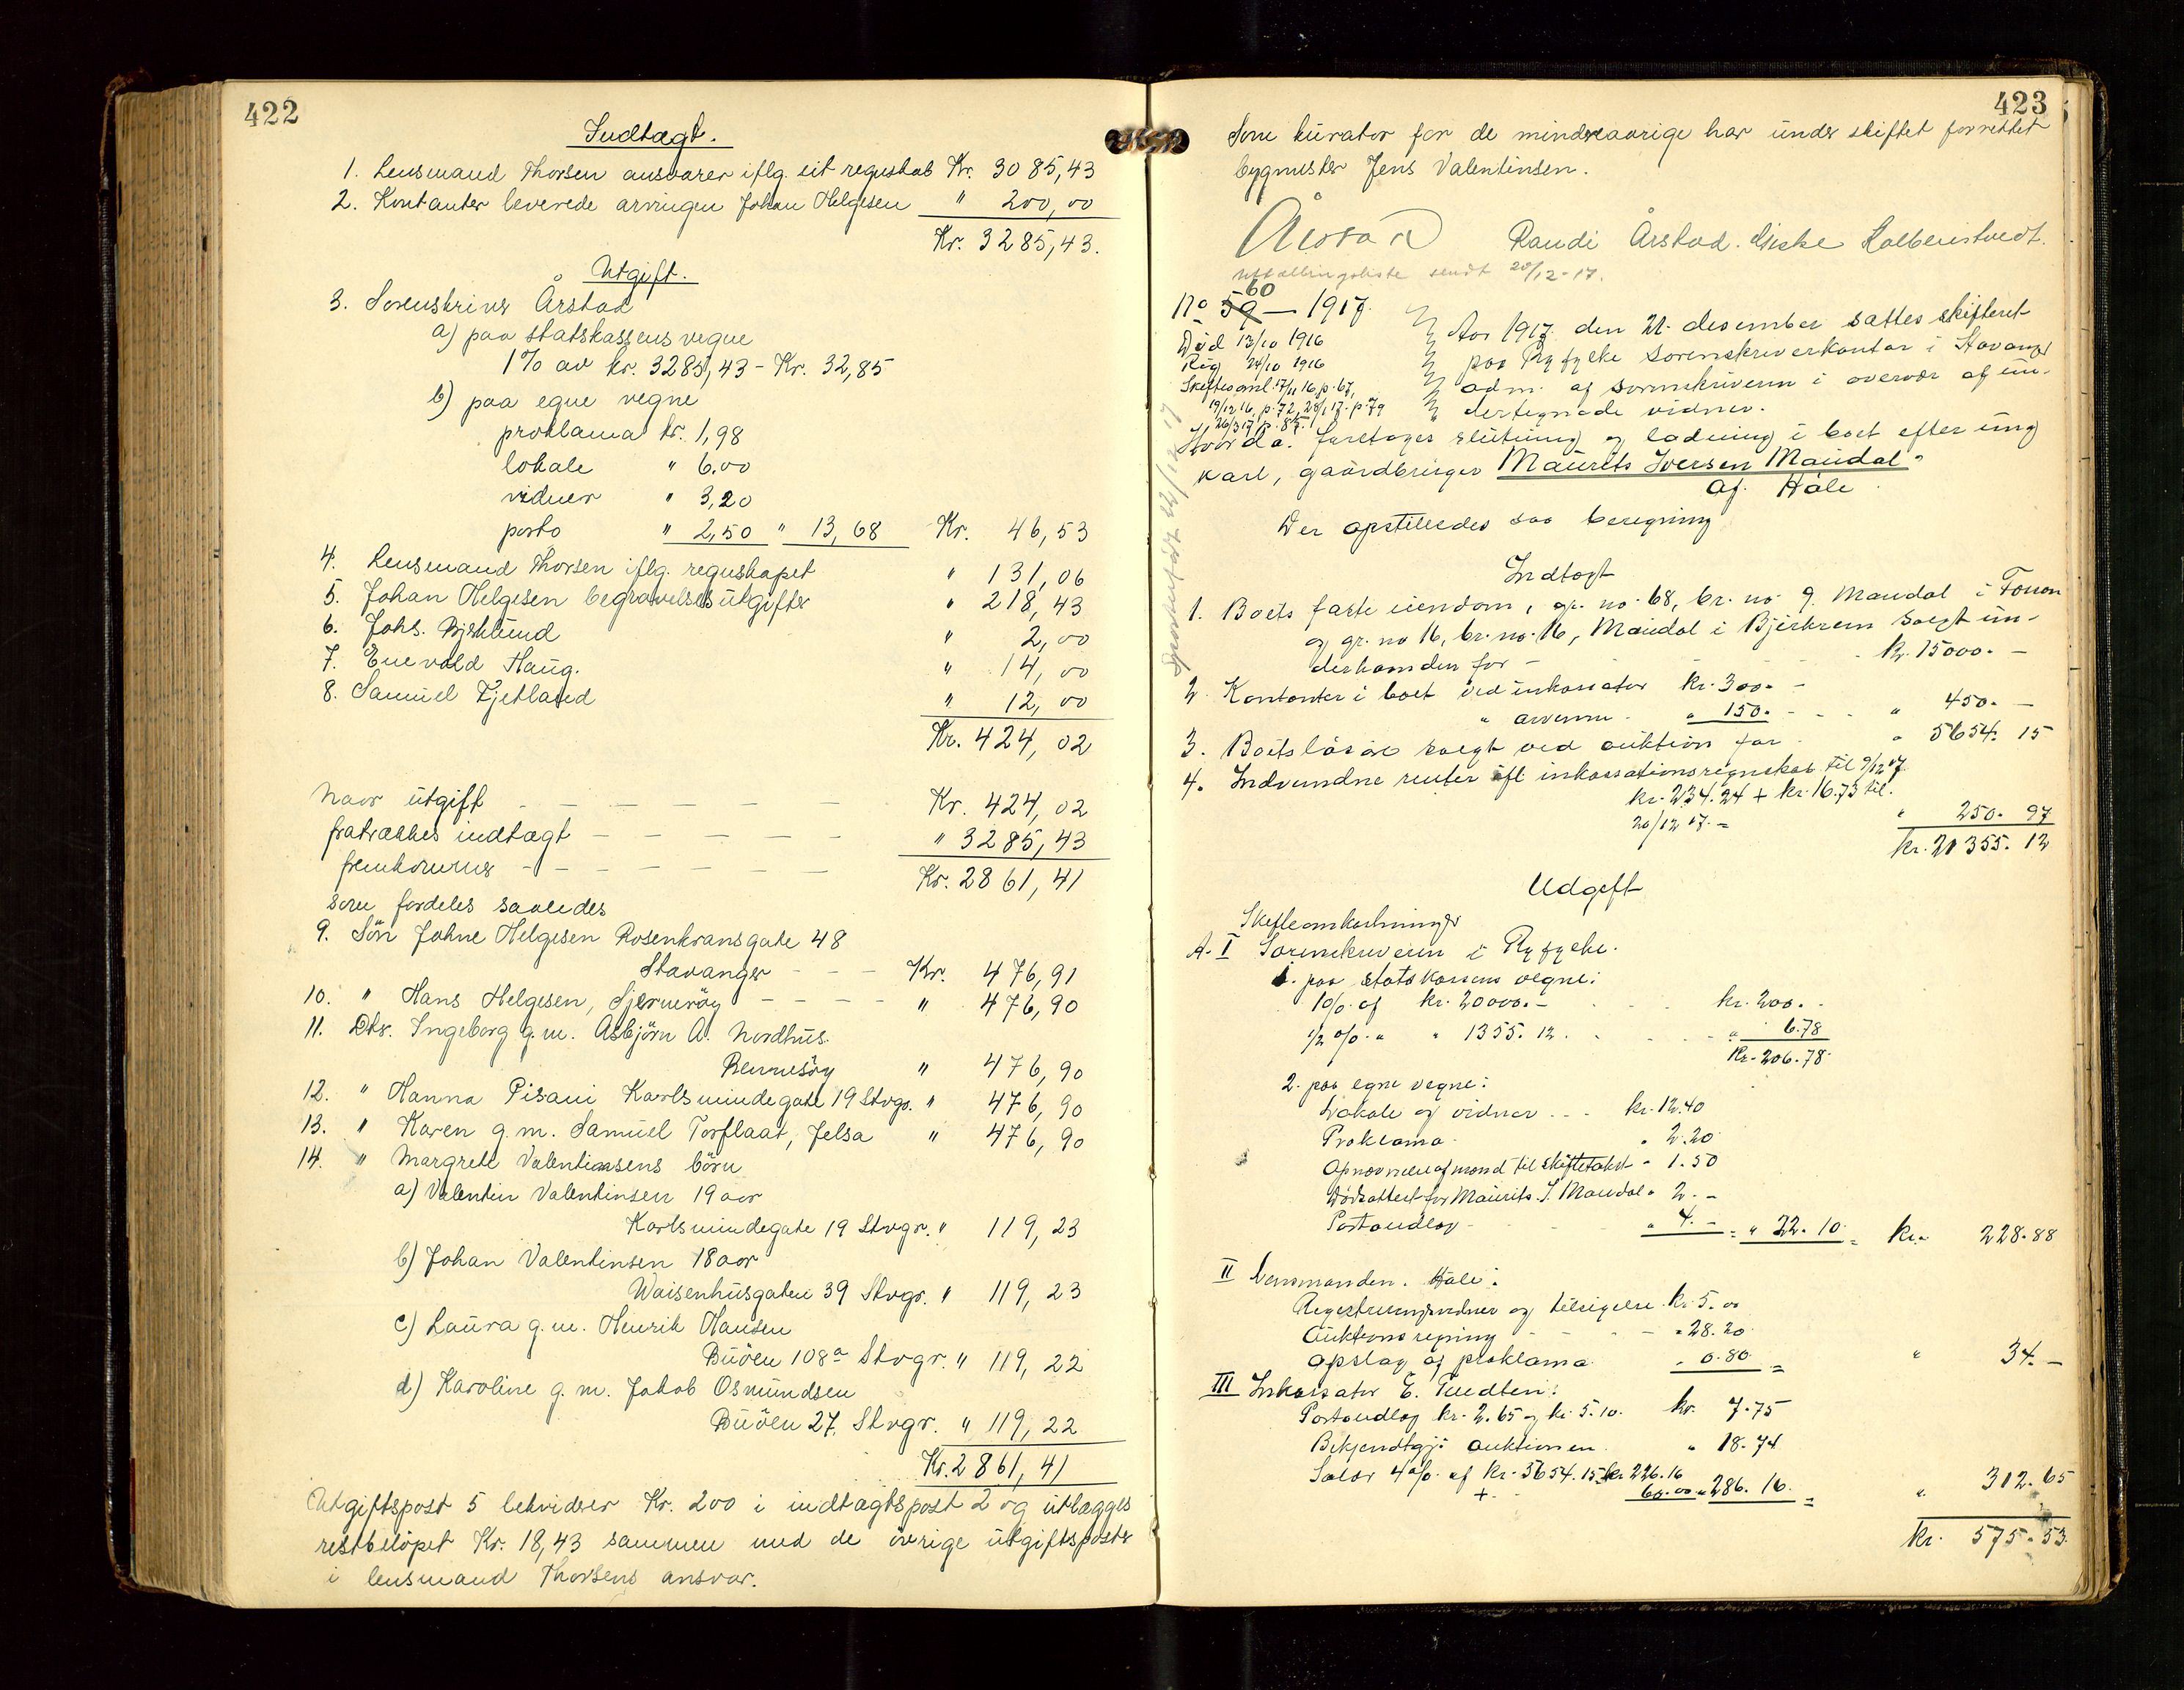 422
Indtægt.
1. Lensmand Thorsen ansvarer iflg. sit regnskab Kr. 3085,43
2. Kontanter leverede arvingen Johan Helgesen " 200,00
Kr. 3285,43.
Utgift.
3. Sorenskriver Årstad
a) paa statskassens vegne
1% av kr. 3285,43 - Kr. 32,85
b) paa egne vegne
proklama kr. 1,98
lokale " 6.00
vidner " 3,20
porto " 2,50 " 13,68 Kr. 46,53
4. Lensmand Thorsen iflg. regnskapet " 131,06
5. Johan Helgesen begravelsesutgifter " 218,43
6. Johs. Bjeklund " 2,00
7. Enevald Haug. " 14,00
8. Samuel Tjetland " 12,00
Kr. 424,02
Naar utgift - - - - - - Kr. 424,02
fratrækkes indtægt - - - - - " 3285,43
fremkommer - - - - - - Kr. 2861,41
som fordeles saaledes
9. Sön Johne Helgesen Rosenkransgate 48
Stavanger - - - Kr. 476,91
10. " Hans Helgesen, Sjernerøy - - - - " 476,90
11. Dtr. Ingeborg g.m. Asbjörn A. Nordhus.
Rennesöy " 476,90
12. " Hanna Pisani Karlsmindegate 19 Stvgr. " 476,90
13. " Karen g.m. Samuel Torflaat, Jelsa " 476,90
14. " Margrete Valentinsens börn
a) Valentin Valentinsen 19 aar
Karlsmindegate 19 Stvgr. " 119,23
b) Johan Valentinsen 18 aar
Waisenhusgaten 39 Stvgr. " 119,23
c) Laura g.m. Henrik Hansen
Buöen 108a Stvgr. " 119,22
d) Karoline g.m. Jakob Osmundsen
Buöen 27, Stvgr. " 119,22
Kr. 2861,41
Utgiftspost 5 lekvidser Kr. 200 i indtægtspost 2 og utlægges
restbelöpet Kr. 18,43 sammen med de övrige utgiftsposter
i lensmand Thorsens ansvar.
423
Som kurator for de mindreaarige har under skiftet forrettet
bygmester Jens Valentinsen.
Årstad Randi Årstad. Giske
Utdelingsliste sendt 28/12-17.
60
No 59 — 1917.
Död 13/10 1916
Reg 24/10 1916
Skiftesaml. 17/11 16 p. 67,
19/12 16. p. 72, 23/1 17. p 79
26/3 17 p. 85.
Aar 1917 den 21. desember sattes skifteret
paa Ryfylke sorenskriverkontor i Stavanger
adm. af sorenskriveren i overvær af un-
dertegnede vidner.
Hvorda: foretoges slutning og ladning i boet efter ung
karl, gaardbruger Maurits Iversen Maudal.
af Håle
Der opstilledes saa beregning
Indtægt
1. Boets faste eiendom, gr. no. 68, br. no. 9. Maudal i Forsan
og gr. no 16, br. no. 16, Maudal i Bjerkrem solgt un-
derhaanden for - kr. 15000. -
2. Kontanter i boet ved inkassator kr. 300. -
" arverne. " 150. - - - " 450. -
3. Boets lösöre solgt ved auktion for " 5654. 15
4. Indvundne renter ifl. inkassationsregnskab til 9/12 17
kr. 234.24 + kr. 16.73 til.
20/12 17. = " 250. 97
kr. 21355. 12
Udgift
Skifteomkostninger
A. I Sorenskriveren i Ryfylke.
1. paa statskassens vegne:
1 0/0. af kr. 20000. - kr. 200. -
1/2 0/0. " " 1355. 12. " 6.78
Kr. 206.78
2. paa egne vegne:
Lokale og vidner - - kr. 12.40
Proklama " 2.20
Opnævnelse af mænd til skiftetakst " 1.50
Dødsattest for Maurits I. Maudal " 2. -
Portoudlæg " 4. - = " 22.10 = kr. 228.88
II Lensmanden. Håle:
Registreringsvidner og tilsigelse kr. 5.00
Auktionsregning " 28.20
Opslag af proklama " 0.80 = " 34. -
III Inkassator E. Tuedten:
Portoudlæg kr. 2.65 og kr. 5.10. kr. 7.75
Bekjendtgj: auktionen " 18.74
Salær 4 0/0. af kr. 5654.15 kr 226.16
+ 60.00 " 286. 16. = " 312.65
kr. 575.53